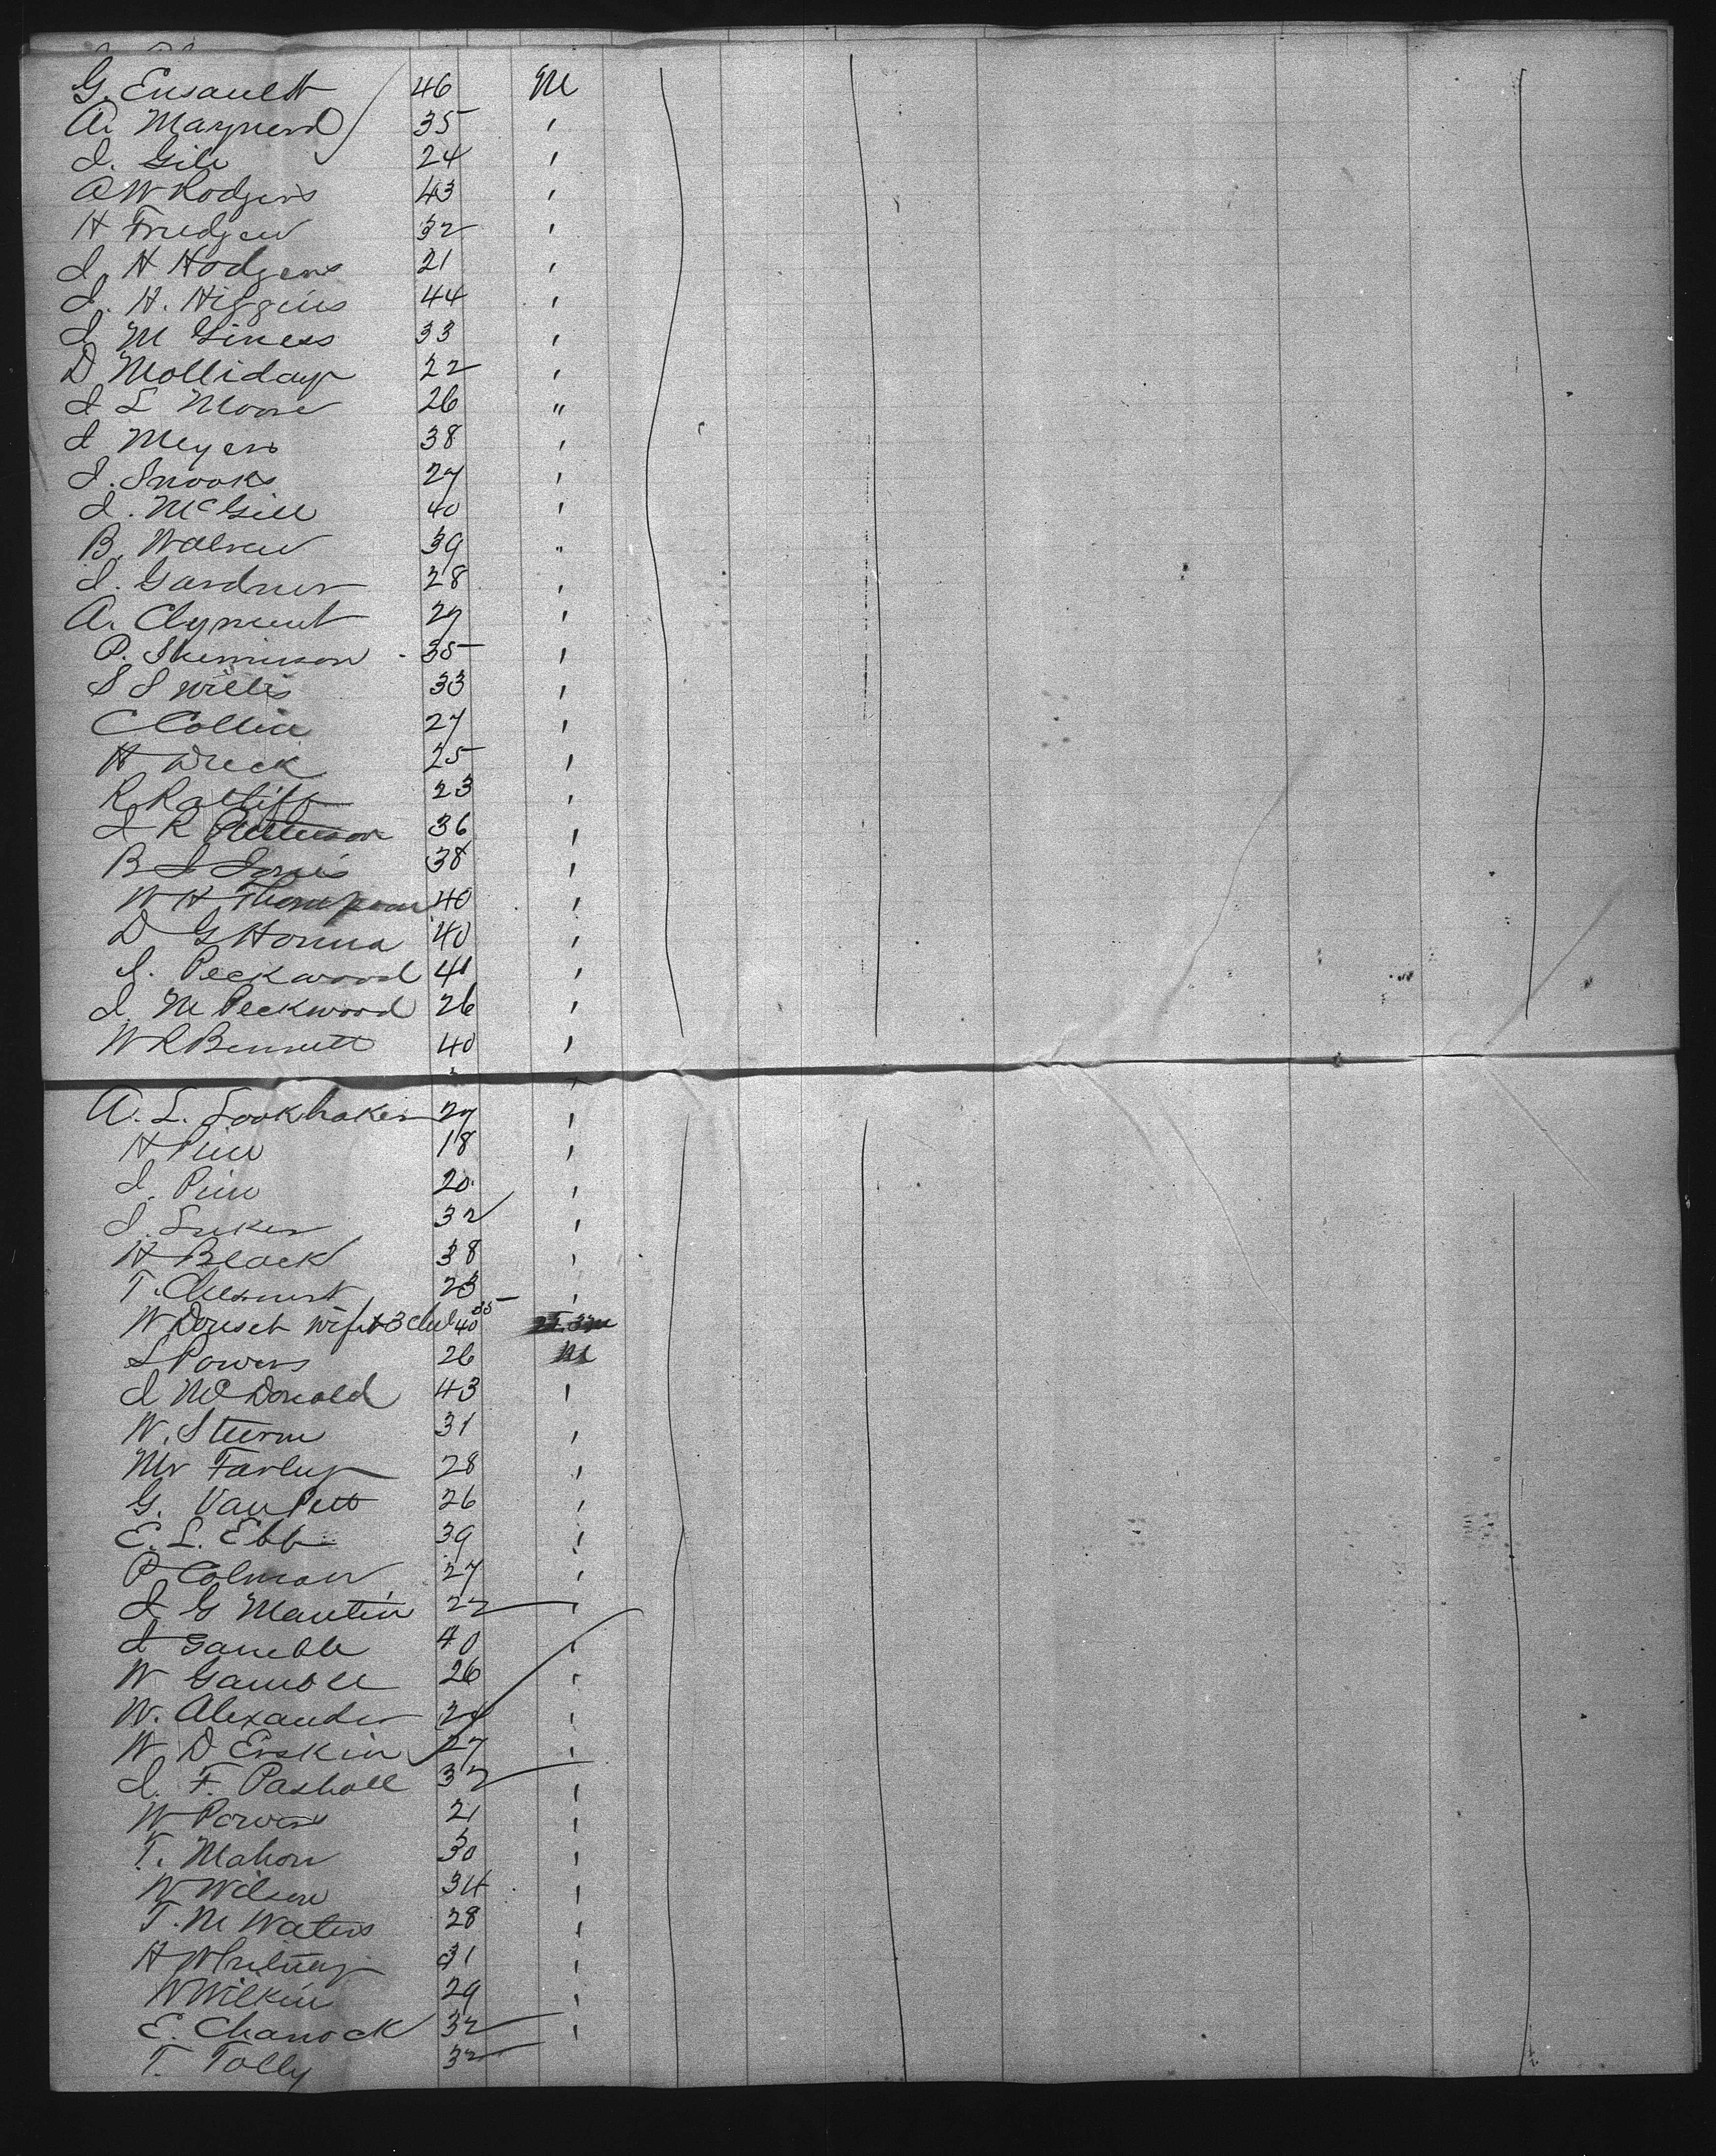 G. Ensault 46 M
A. Maynerd 35 "
J. Gill 24 "
A W Rodgers 43 "
H Frudgen 32 "
J. H Hodgens 21 "
J. H. Higgins 44 "
J M Giness 33 "
D Molliday 22 "
J L Moore 26 "
J Meyers 38 "
J. Snooks 27 "
J. McGill 40 "
B. 39 "
J. Gardner 28 "
A. Clyment 27 "
P. 35 "
S S Willis 33 "
C Collin 27 "
H Dieck 25 "
R. Ratliff 23 "
J R Patterson 36 "
B J Jones 38 "
W H Thompson 40 "
D G Honna 40 "
J. Peckwood 41 "
J. M Peckwood 26 "
W R Bennett 40 "
A. L. Lookbaker 27 "
H Pim 18 "
J. Pim 20 "
J. Suker 32 "
H Black 38 "
T. Chesnut 23 "
W Dorset wife & 3 chil 40 35
L Powers 26 M
J McDonald 43 "
W. Sturm 31 "
Mr Farley 28 "
G. Van Pett 26 "
E. L. Ebb 39 "
P Colman 27 "
J G Mantin 22 "
J Gamble 40 "
W Gamble 26 "
W. Alexander "
W D Erskin 27 "
J. F. Pashall 32 "
W Powers 21 "
T. Mahon 30 "
W Wilson 34 "
T. M Waters 28 "
H Whitney 31 "
W Wilkin 29 "
E. Charnock 32 "
T. Tolly 32